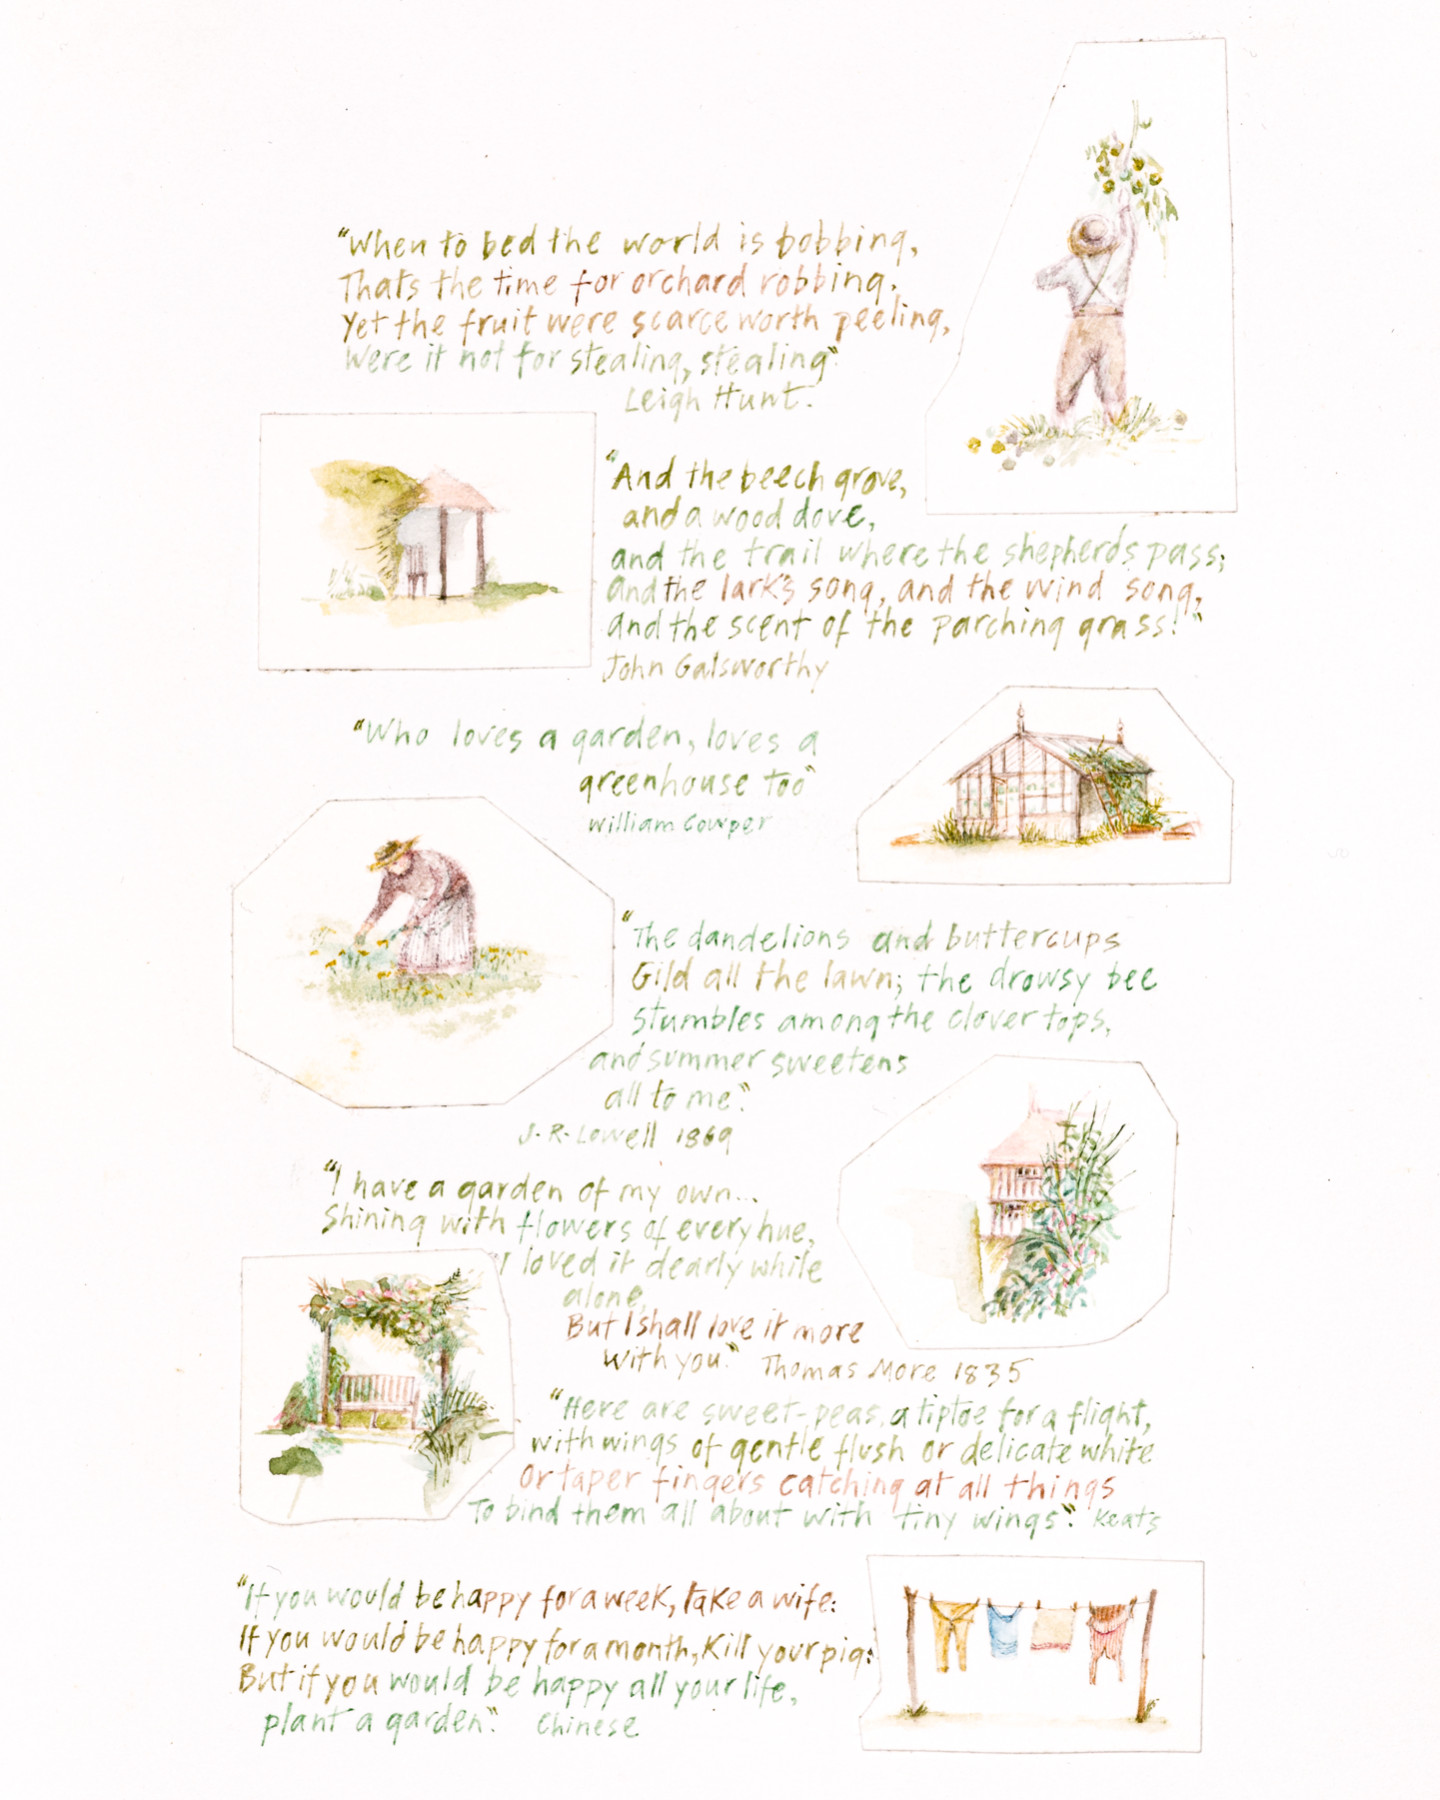 "When to bed the world is bobbing,
Thats the time for orchard robbing.
Yet the fruit were scarce worth peeling,
Were it not for stealing, stealing"
Leigh Hunt.
"And the beech grove,
and a wood dove,
and the trail where the shepherds pass;
and the lark's song, and the wind song,
and the scent of the parching grass!"
John Galsworthy
"Who loves a garden, loves a
greenhouse too"
William Cowper
"The dandelions and buttercups
Gild all the lawn; the drowsy bee
stumbles among the clover tops,
and summer sweetens
all to me."
J.R. Lowell 1869
"I have a garden of my own...
Shining with flowers of every hue,
I loved it dearly while
alone,
But I shall love it more
with you." Thomas More 1835
"Here are sweet-peas, a tiptoe for a flight,
with wings of gentle flush or delicate white
Or taper fingers catching at all things
To bind them all about with tiny wings". Keats
"If you would be happy for a week, take a wife:
If you would be happy for a month, Kill your pig:
But if you would be happy all your life,
plant a garden". Chinese